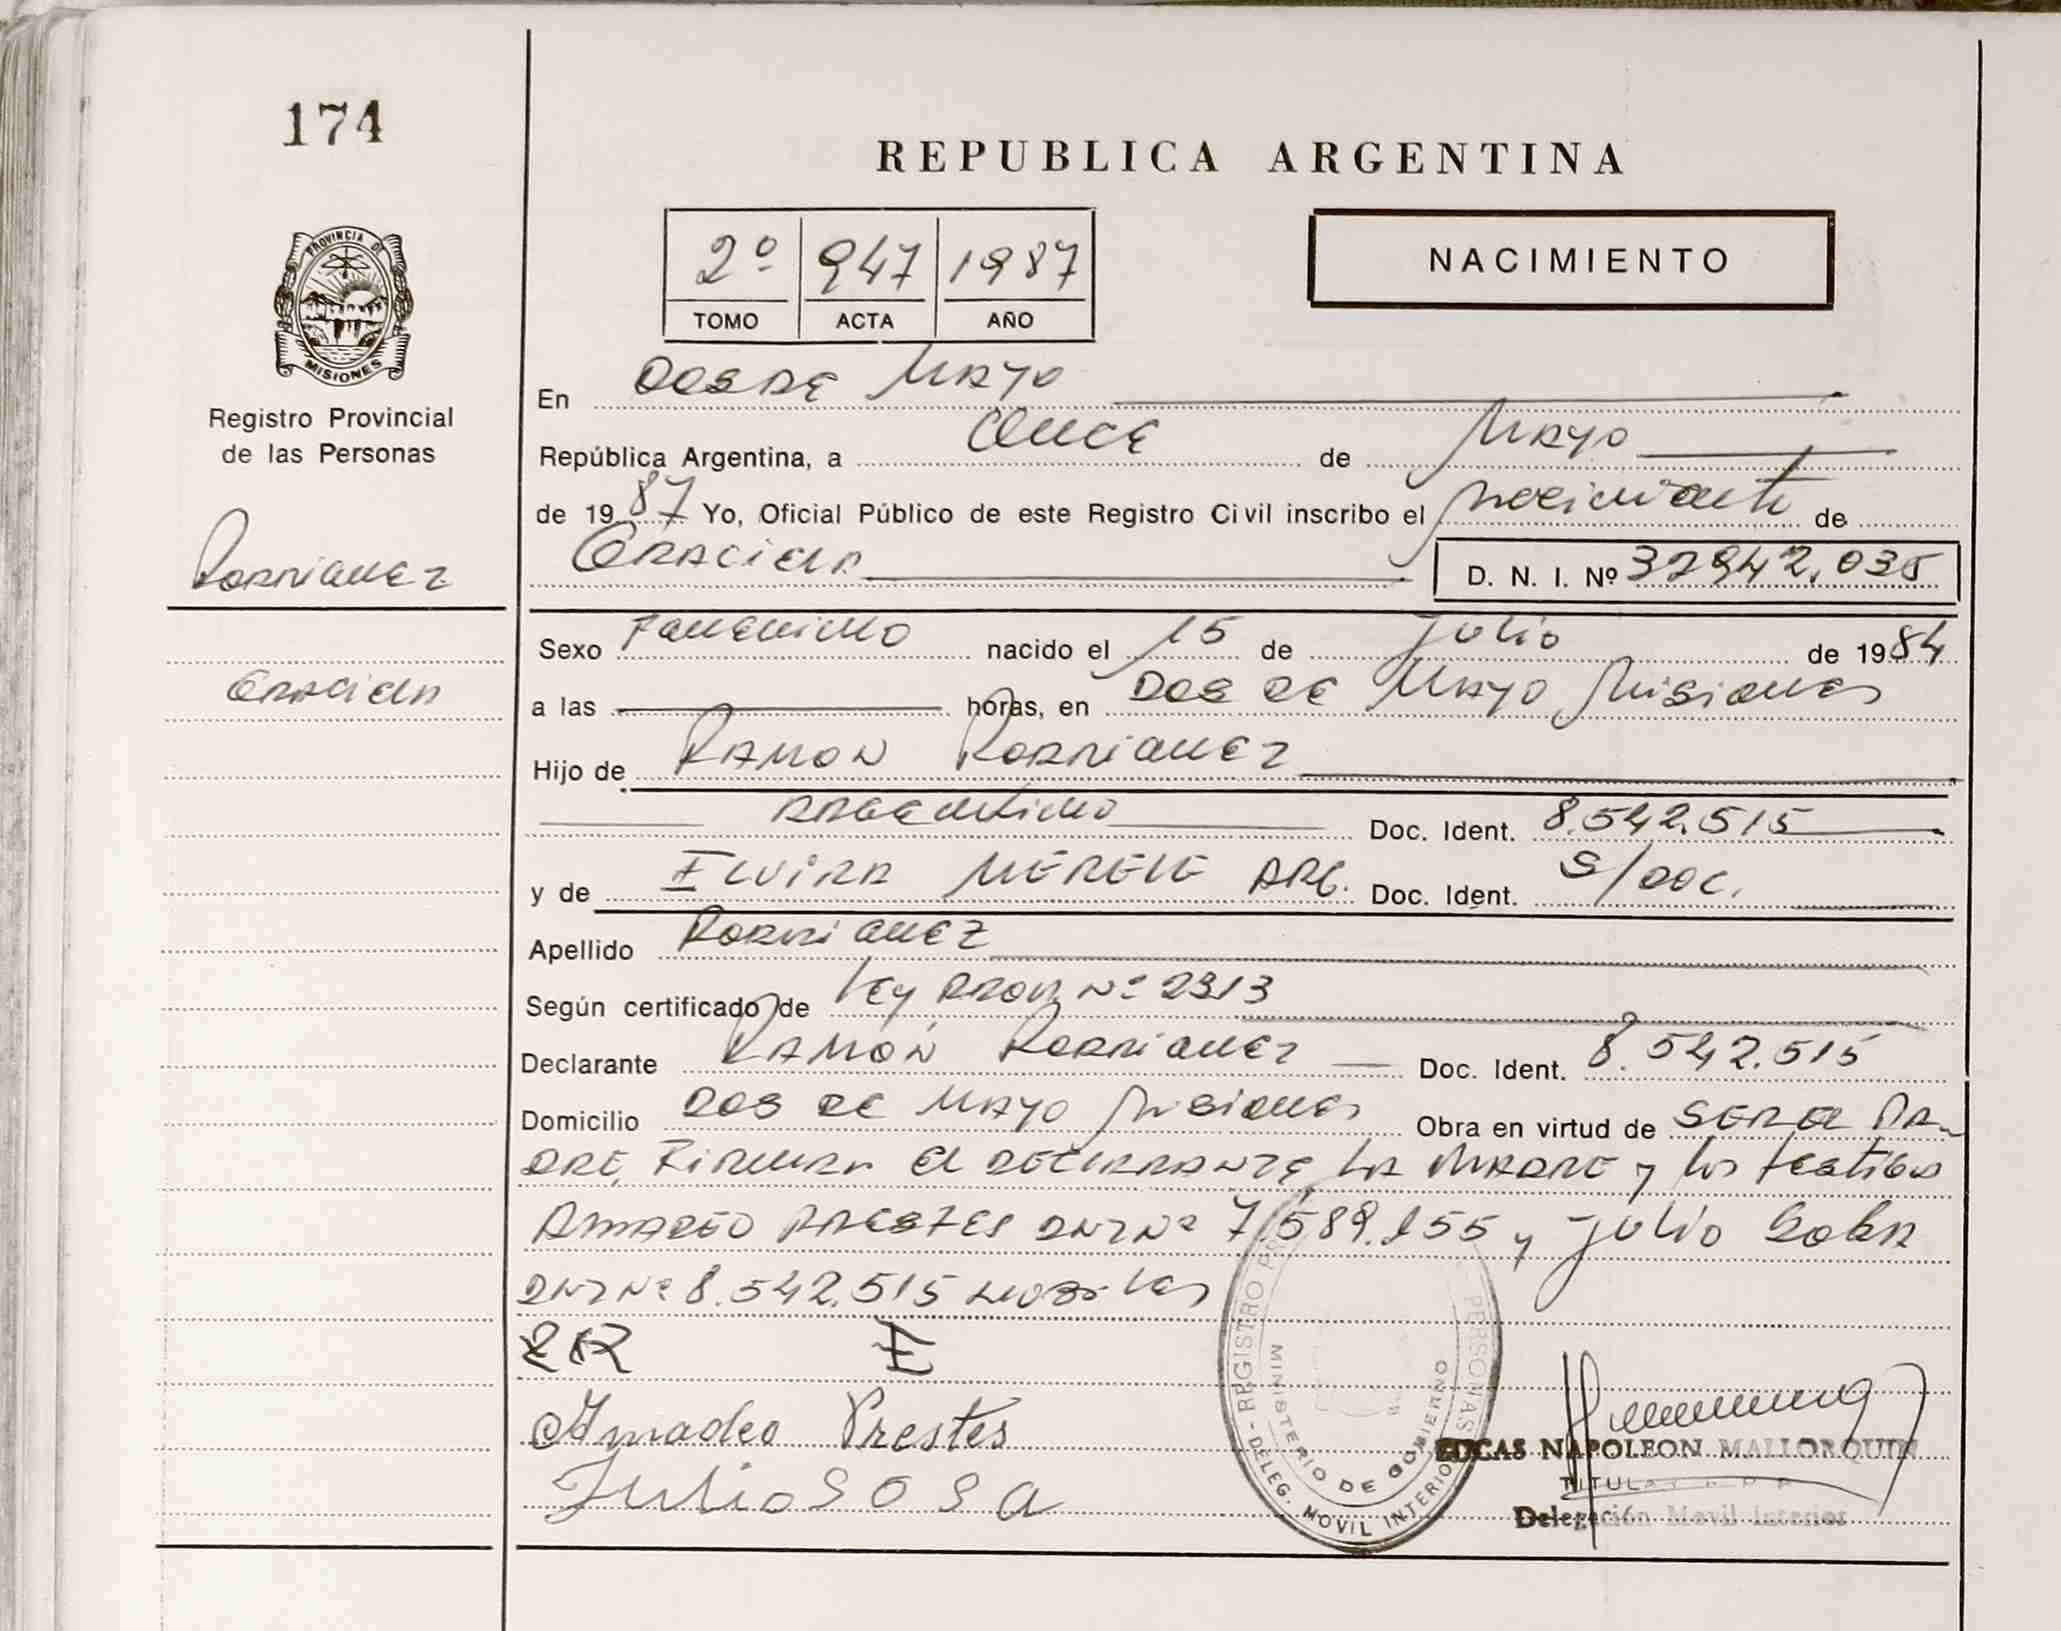 174
REPUBLICA ARGENTINA
2º 947 1987
TOMO ACTA AÑO
NACIMIENTO
PROVINCIA DE
MISIONES
Registro Provincial
de las Personas
Rodriguez
Graciela
En Dos de Mayo
República Argentina, a Once de Mayo
de 1987 Yo, Oficial Público de este Registro Civil inscribo el Nacimiento de
Graciela D. N. I. Nº 32.942.035
Sexo Femenino nacido el 15 de Julio de 1984
a las horas, en Dos de Mayo Misiones
Hijo de Ramon Rodriguez
Argentino Doc. Ident. 8.542.515
y de Elvira Merele ARG. Doc. Ident. S/DOC.
Apellido Rodriguez
Según certificado de Ley Prov. Nº 2313
Declarante Ramón Rodriguez Doc. Ident. 8.542.515
Domicilio Dos de Mayo Misiones Obra en virtud de SER el PA-
DRE, Firman el declarante, la Madre y los testigos
Amadeo Prestes DNI Nº 7.589.155 y Julio Sosa
DNI Nº 8.542.515
RR E
Amadeo Prestes
Julio SOSA
DELEG. MOVIL INTERIOR - REGISTRO PERSONAS
MINISTERIO DE GOBIERNO
LUCAS NAPOLEON MALLORQUIN
TITULAR
Delegación Movil Interior